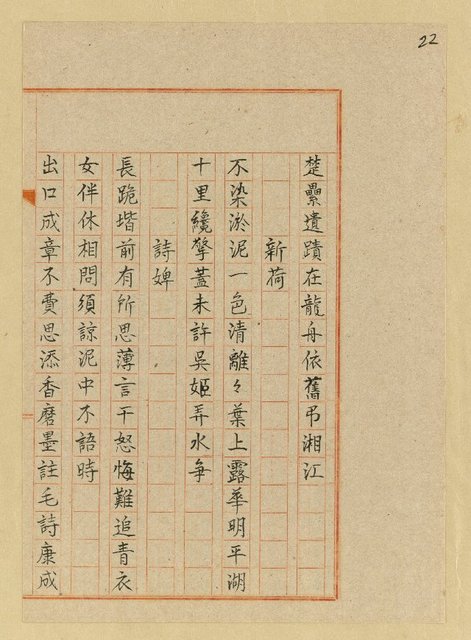 22
楚纍遺蹟在龍舟依舊弔湘江
新荷
不染淤泥一色清離々葉上露華明平湖
十里纔擎蓋未許吳姬弄水爭
詩婢
長跪堦前有所思薄言干怒悔難追青衣
女伴休相問須諒泥中不語時
出口成章不費思添香磨墨註毛詩康成